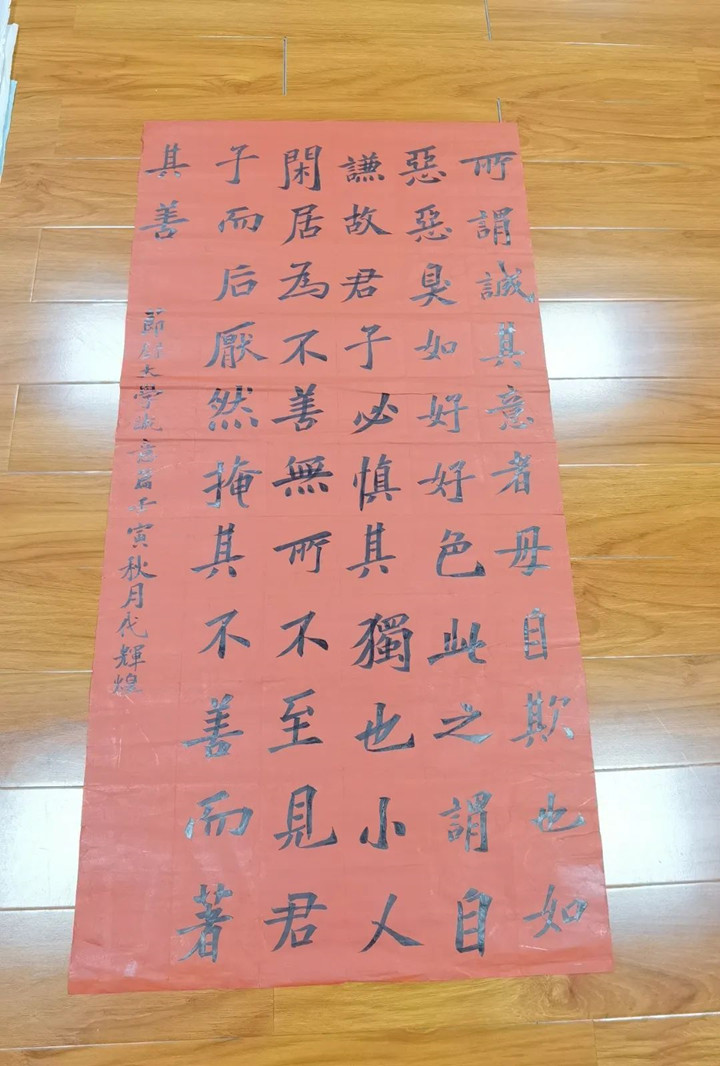 所謂誠其意者毋自欺也如
惡惡臭如好好色此之謂自
謙故君子必慎其獨也小人
閑居為不善無所不至見君
子而后厭然掩其不善而著
其善
節錄大學誠意篇壬寅秋月代輝煌